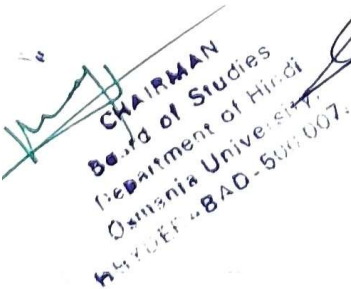 CHAIRMAN
Board of Studies
Department of Hindi
Osmania University,
HYDERABAD-500 007.